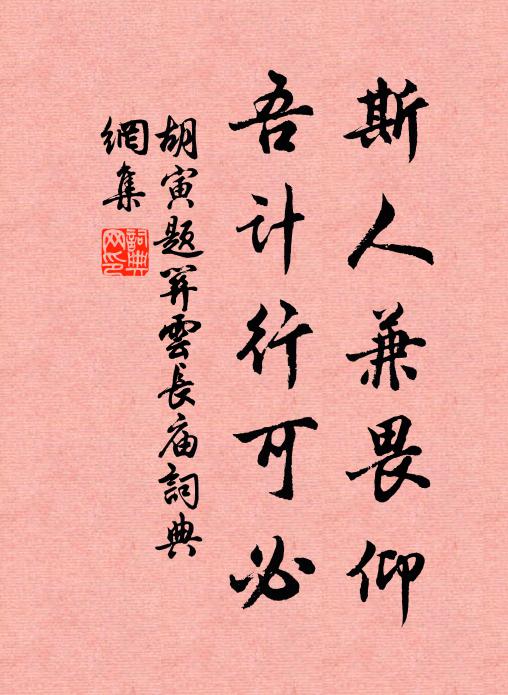 斯人兼畏仰
吾计行可必
胡寅题关雲長庙詞典
網集
詞典
网印